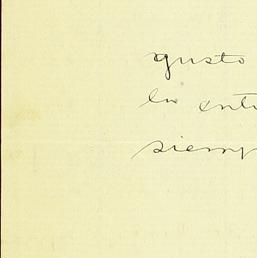 gusto
en ent
siemp